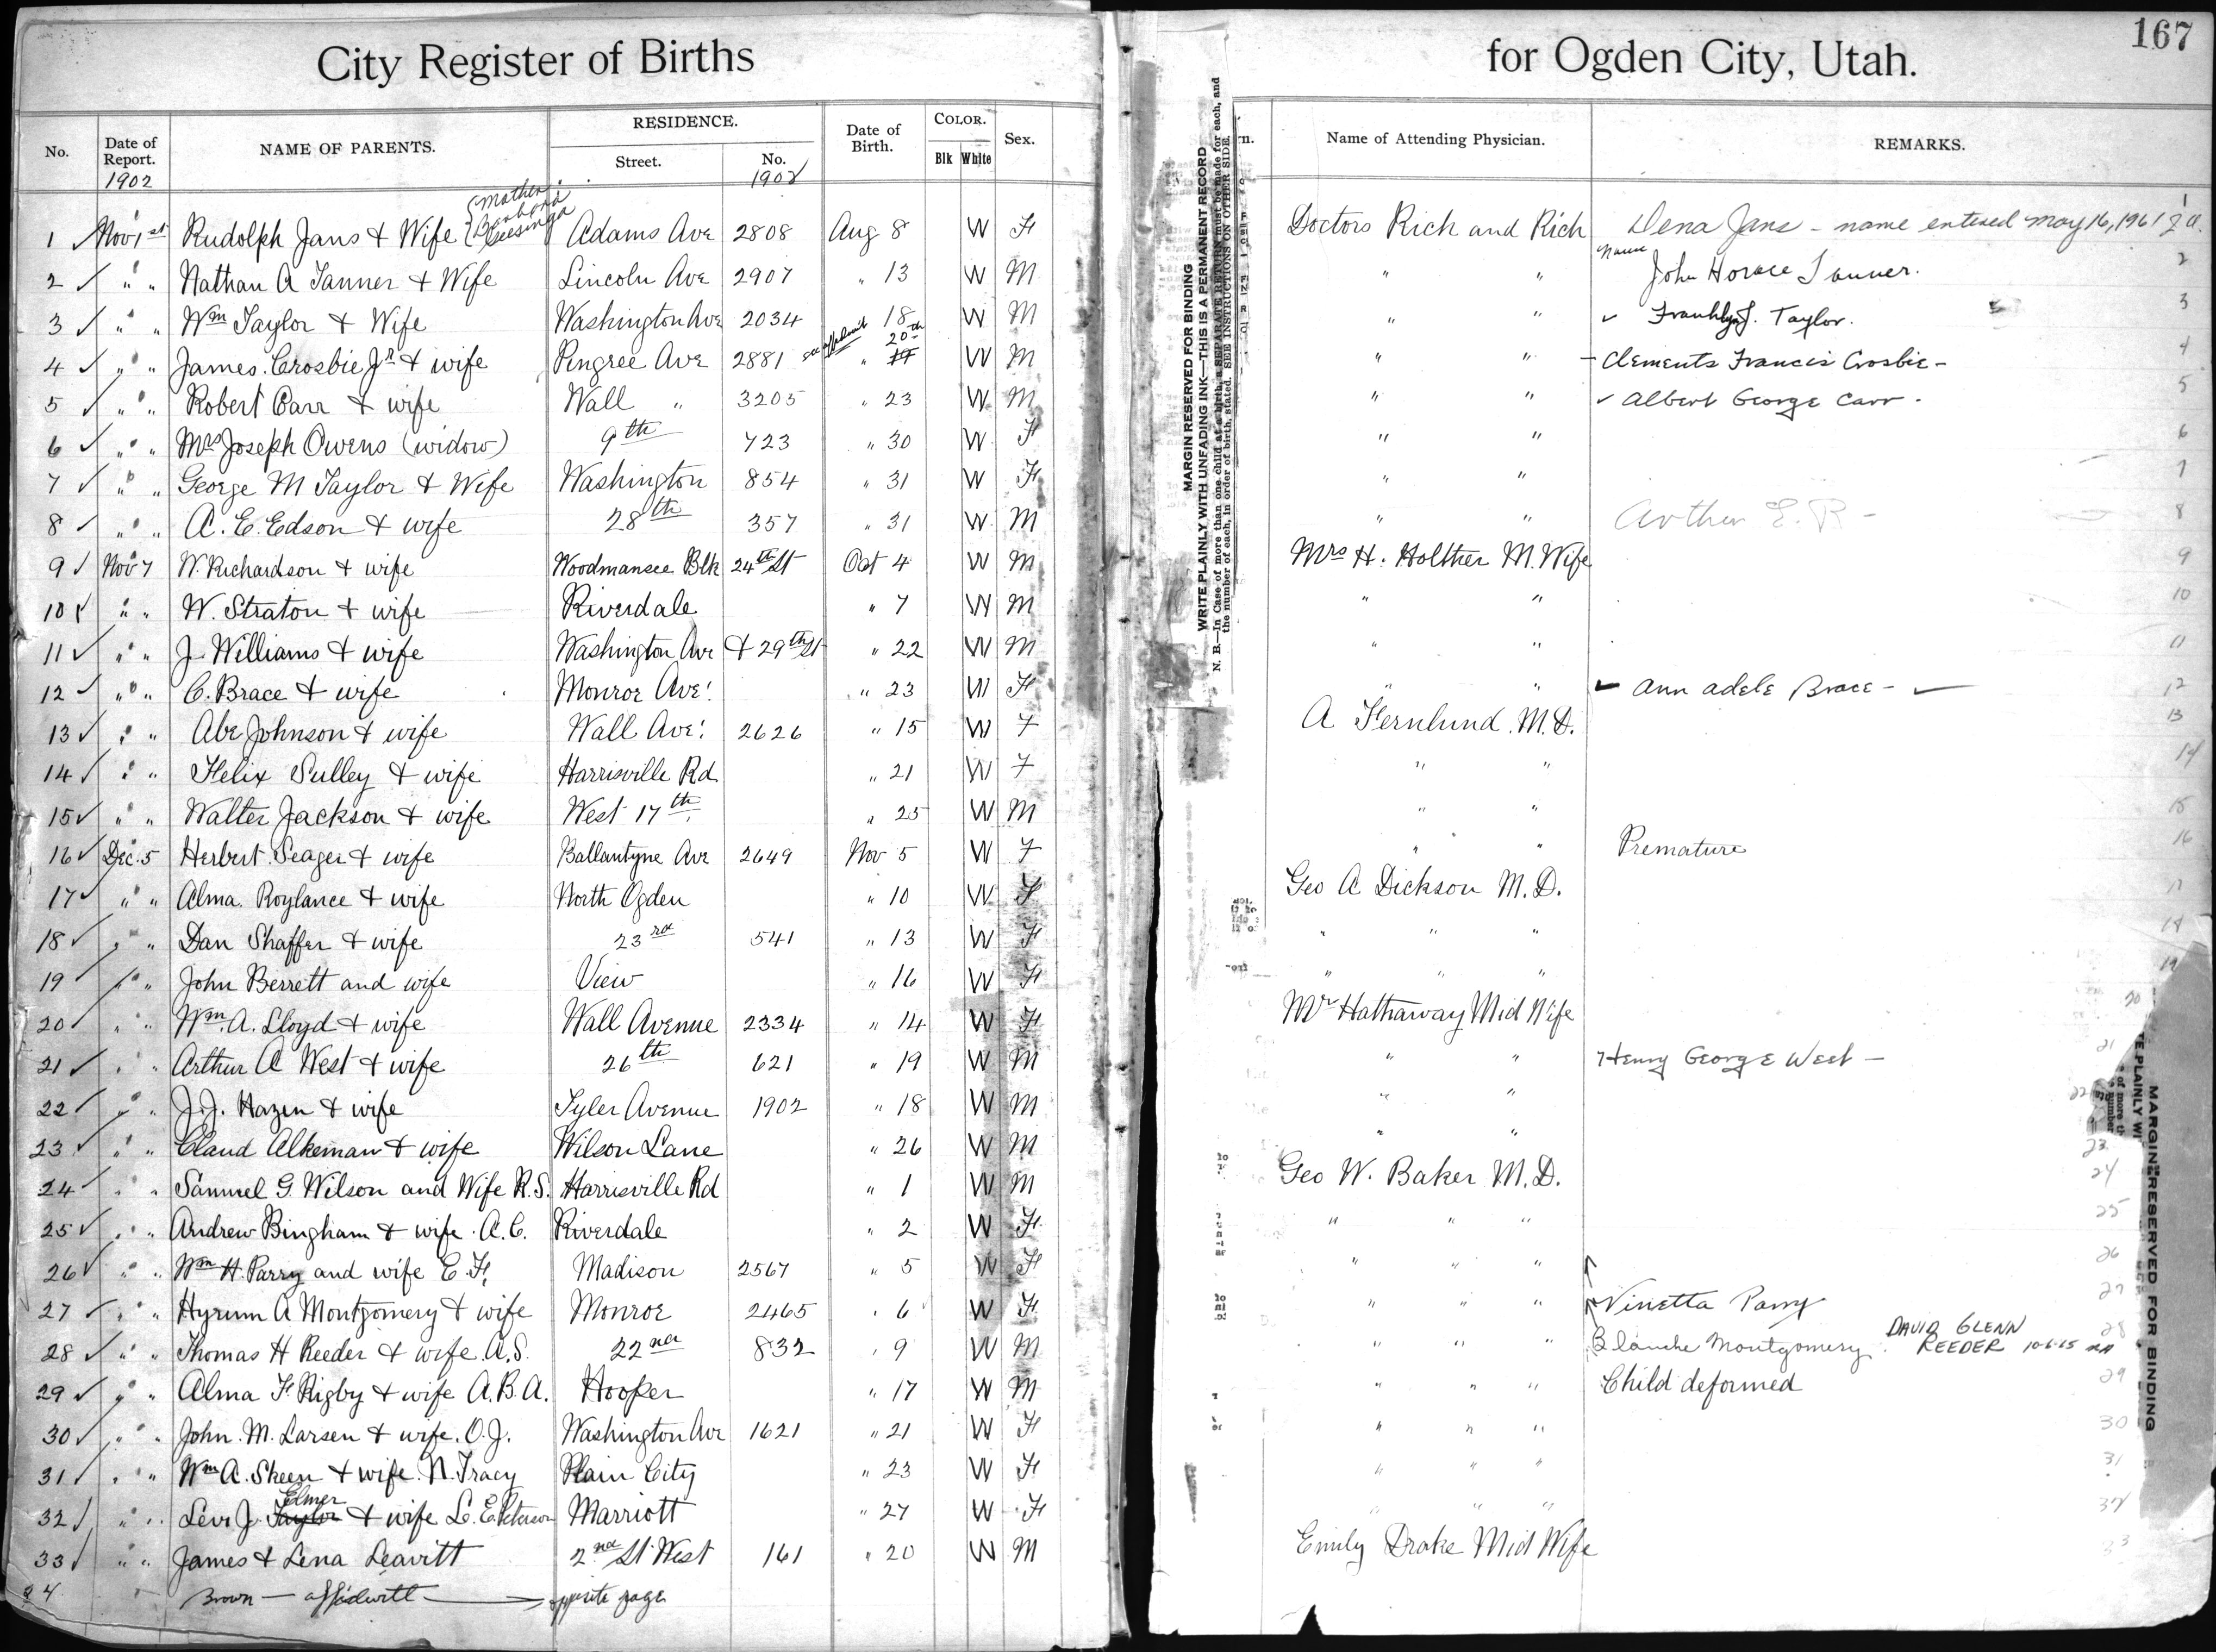 167
City Register of Births for Ogden City, Utah.
No. Date of Report. 1902 NAME OF PARENTS. RESIDENCE. Street. No. 1902 Date of Birth. COLOR. Blk White Sex. Name of Attending Physician. REMARKS.
MARGIN RESERVED FOR BINDING
WRITE PLAINLY WITH UNFADING INK—THIS IS A PERMANENT RECORD
N. B.—In Case of more than one child at a birth, a SEPARATE RETURN must be made for each, and
the number of each, in order of birth, stated. SEE INSTRUCTIONS ON OTHER SIDE.
{Mother Barbara Geesinga
1 ✓ Nov 1st Rudolph Jans & Wife Adams Ave 2808 Aug 8 W F Doctors Rich and Rich Dena Jans - name entered May 16, 1961 1
2 ✓ " " Nathan A Tanner & Wife Lincoln Ave 2907 " 13 W M " " Name John Horace Tanner. 2
3 ✓ " " Wm Taylor & Wife Washington Ave 2034 18 W M " " ✓ Franklyn J. Taylor. 3
4 ✓ " " James Crosbie Jr & wife Pingree Ave 2881 see affidavit 20th " 17 W M " " - Clements Francis Crosbie - 4
5 ✓ " " Robert Carr & wife Wall " 3205 " 23 W M " " ✓ Albert George Carr - 5
6 ✓ " " Mrs Joseph Owens (widow) 9th 723 " 30 W F " " 6
7 ✓ " " George M Taylor & Wife Washington 854 " 31 W F " " 7
8 ✓ " " A. E. Edson & wife 28th 357 " 31 W M " " Arthur E. R - 8
9 ✓ Nov 7 W. Richardson & wife Woodmansee Blk 24th St Oct 4 W M Mrs H. Holther M. Wife 9
10 ✓ " " W. Straton & wife Riverdale " 7 W M " " 10
11 ✓ " " J. Williams & wife Washington Ave & 29th St " 22 W M " " 11
12 ✓ " " C. Brace & wife Monroe Ave. " 23 W F " " ✓ Ann Adele Brace - ✓ 12
13 ✓ " " Abe Johnson & wife Wall Ave. 2626 " 15 W F A Fernlund. M.D. 13
14 ✓ " " Felix Sulley & wife Harrisville Rd " 21 W F " " 14
15 ✓ " " Walter Jackson & wife West 17th " 25 W M " " 15
16 ✓ Dec. 5 Herbert Seager & wife Ballantyne Ave 2649 Nov 5 W F " " Premature 16
17 ✓ " " Alma Roylance & wife North Ogden " 10 W F Geo A Dickson M.D. 17
18 ✓ " " Dan Shaffer & wife 23rd 541 " 13 W F " " " 18
19 ✓ " " John Berrett and wife View " 16 W F " " " 19
20 ✓ " " Wm. A. Lloyd & wife Wall Avenue 2334 " 14 W F Mr Hathaway Mid Wife 20
21 ✓ " " Arthur A West & wife 26th 621 " 19 W M " " Henry George West - 21
22 ✓ " " J.J. Hazen & wife Tyler Avenue 1902 " 18 W M " " 22
23 ✓ " " Claud Alkeman & wife Wilson Lane " 26 W M " " 23
24 ✓ " " Samuel G. Wilson and Wife R.S. Harrisville Rd " 1 W M Geo W. Baker M.D. 24
25 ✓ " " Andrew Bingham & wife A.C. Riverdale " 2 W F " " " 25
26 ✓ " " Wm H. Parry and wife E.F. Madison 2567 " 5 W F " " " 26
27 ✓ " " Hyrum A Montgomery & wife Monroe 2465 " 6 W F " " " Vinetta Parry 27
28 ✓ " " Thomas H Reeder & wife A.S. 22nd 832 " 9 W M " " " Blanche Montgomery. DAVID GLENN REEDER 10-6-65 28
29 ✓ " " Alma F Rigby & wife A.B.A. Hooper " 17 W M " " " Child deformed 29
30 ✓ " " John. M. Larsen & wife. O.J. Washington Ave 1621 " 21 W F " " " 30
31 ✓ " " Wm A. Skeen & wife N. Tracy Plain City " 23 W F " " " 31
32 ✓ " " Levi J. Taylor Elmer & wife L.E. Peterson Marriott " 27 W F " " " 32
33 ✓ " " James & Lena Leavitt 2nd St West 161 " 20 W M Emily Drake Mid Wife 33
34 Brown — affidavitt — opposite page
MARGIN RESERVED FOR BINDING